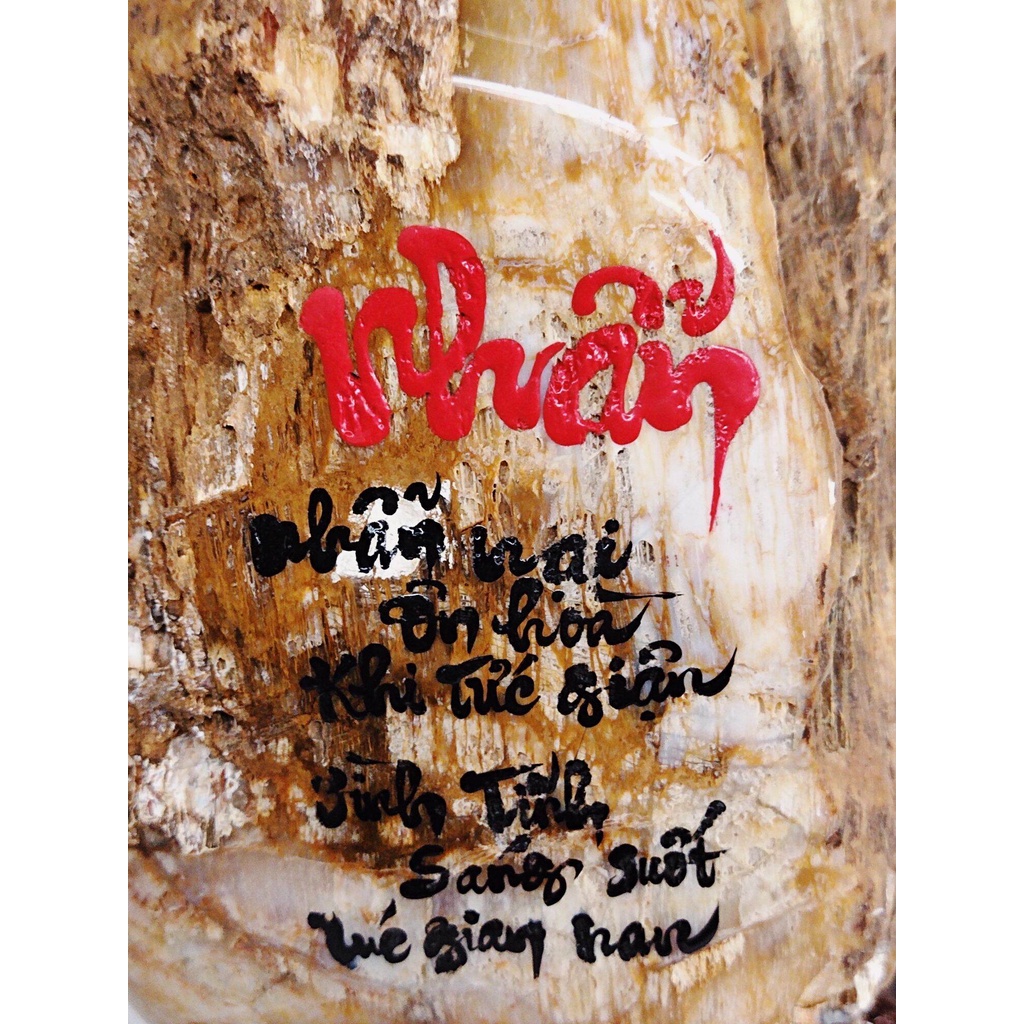 Nhẫn
nhẫn nại
ôn hoà
khi tức giận
Bình Tĩnh
Sáng suốt
lúc gian nan